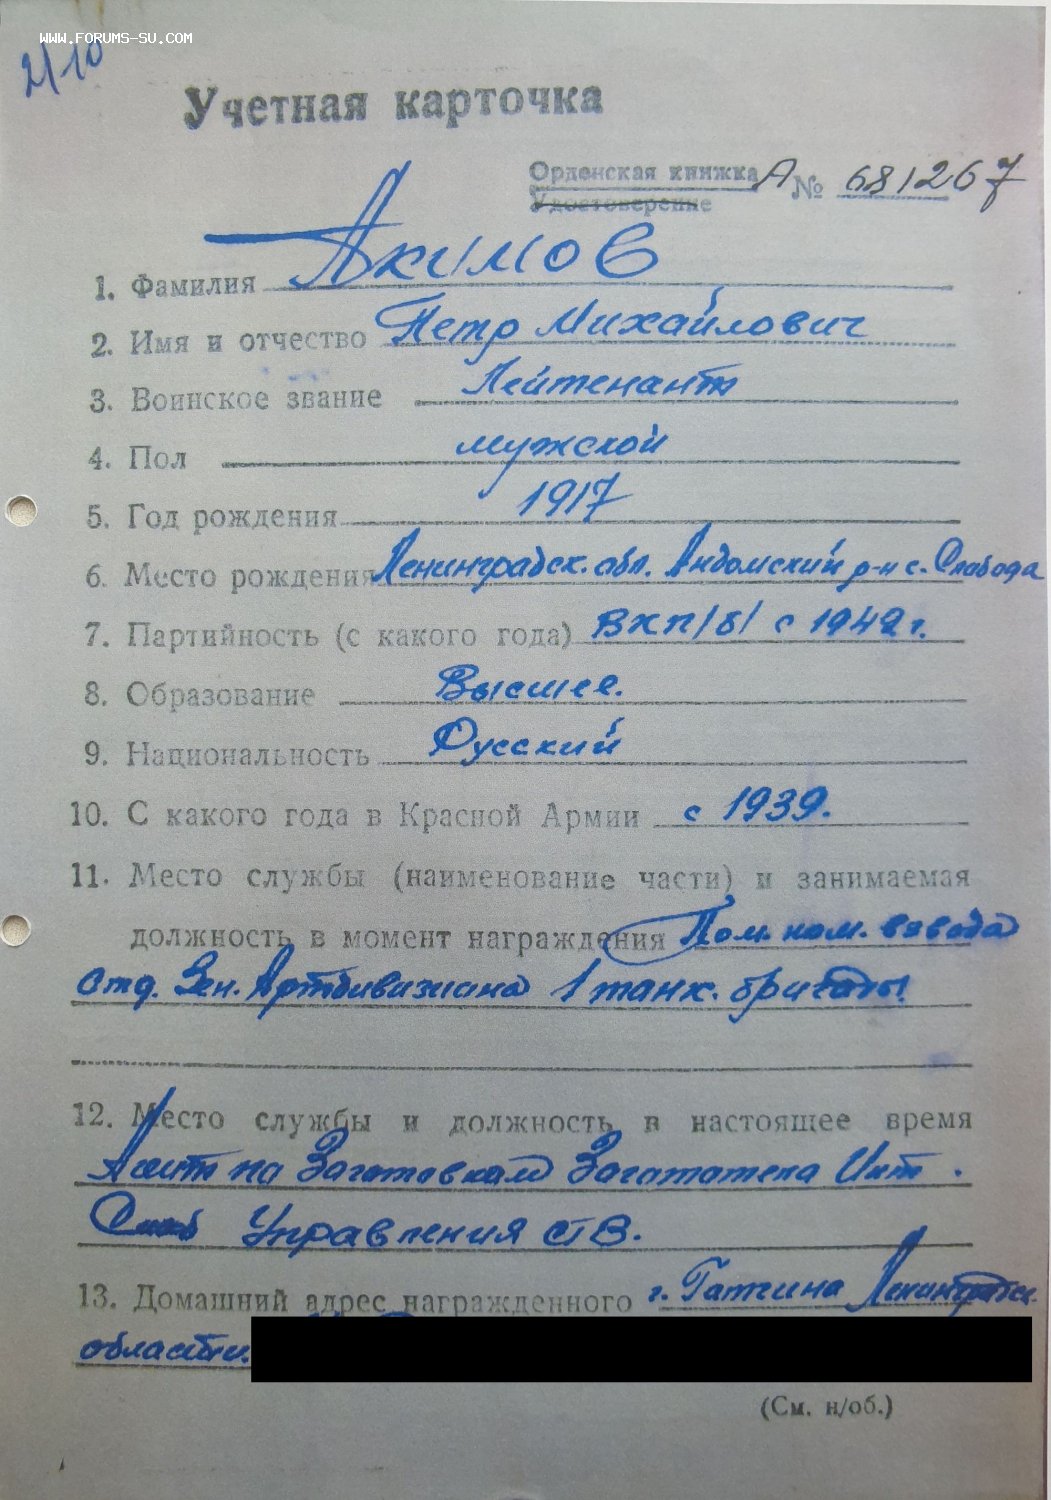 WWW.FORUMS-SU.COM
2/10
Учетная карточка
Орденская книжка А № 681267
Удостоверение
1. Фамилия Акимов
2. Имя и отчество Петр Михайлович
3. Воинское звание Лейтенант
4. Пол мужской
5. Год рождения 1917
6. Место рождения Ленинградск. обл. Андомский р-н с. Слобода
7. Партийность (с какого года) ВКП/б/ с 1942 г.
8. Образование Высшее.
9. Национальность Русский
10. С какого года в Красной Армии с 1939.
11. Место службы (наименование части) и занимаемая
должность в момент награждения Пом. ком. взвода
отд. Зен. Артдивизиона 1 танк. бригады.
12. Место службы и должность в настоящее время
на Заготовкам Инт.
Управления СГВ.
13. Домашний адрес награжденного г. Гатчина Ленинградск.
области.
(См. н/об.)